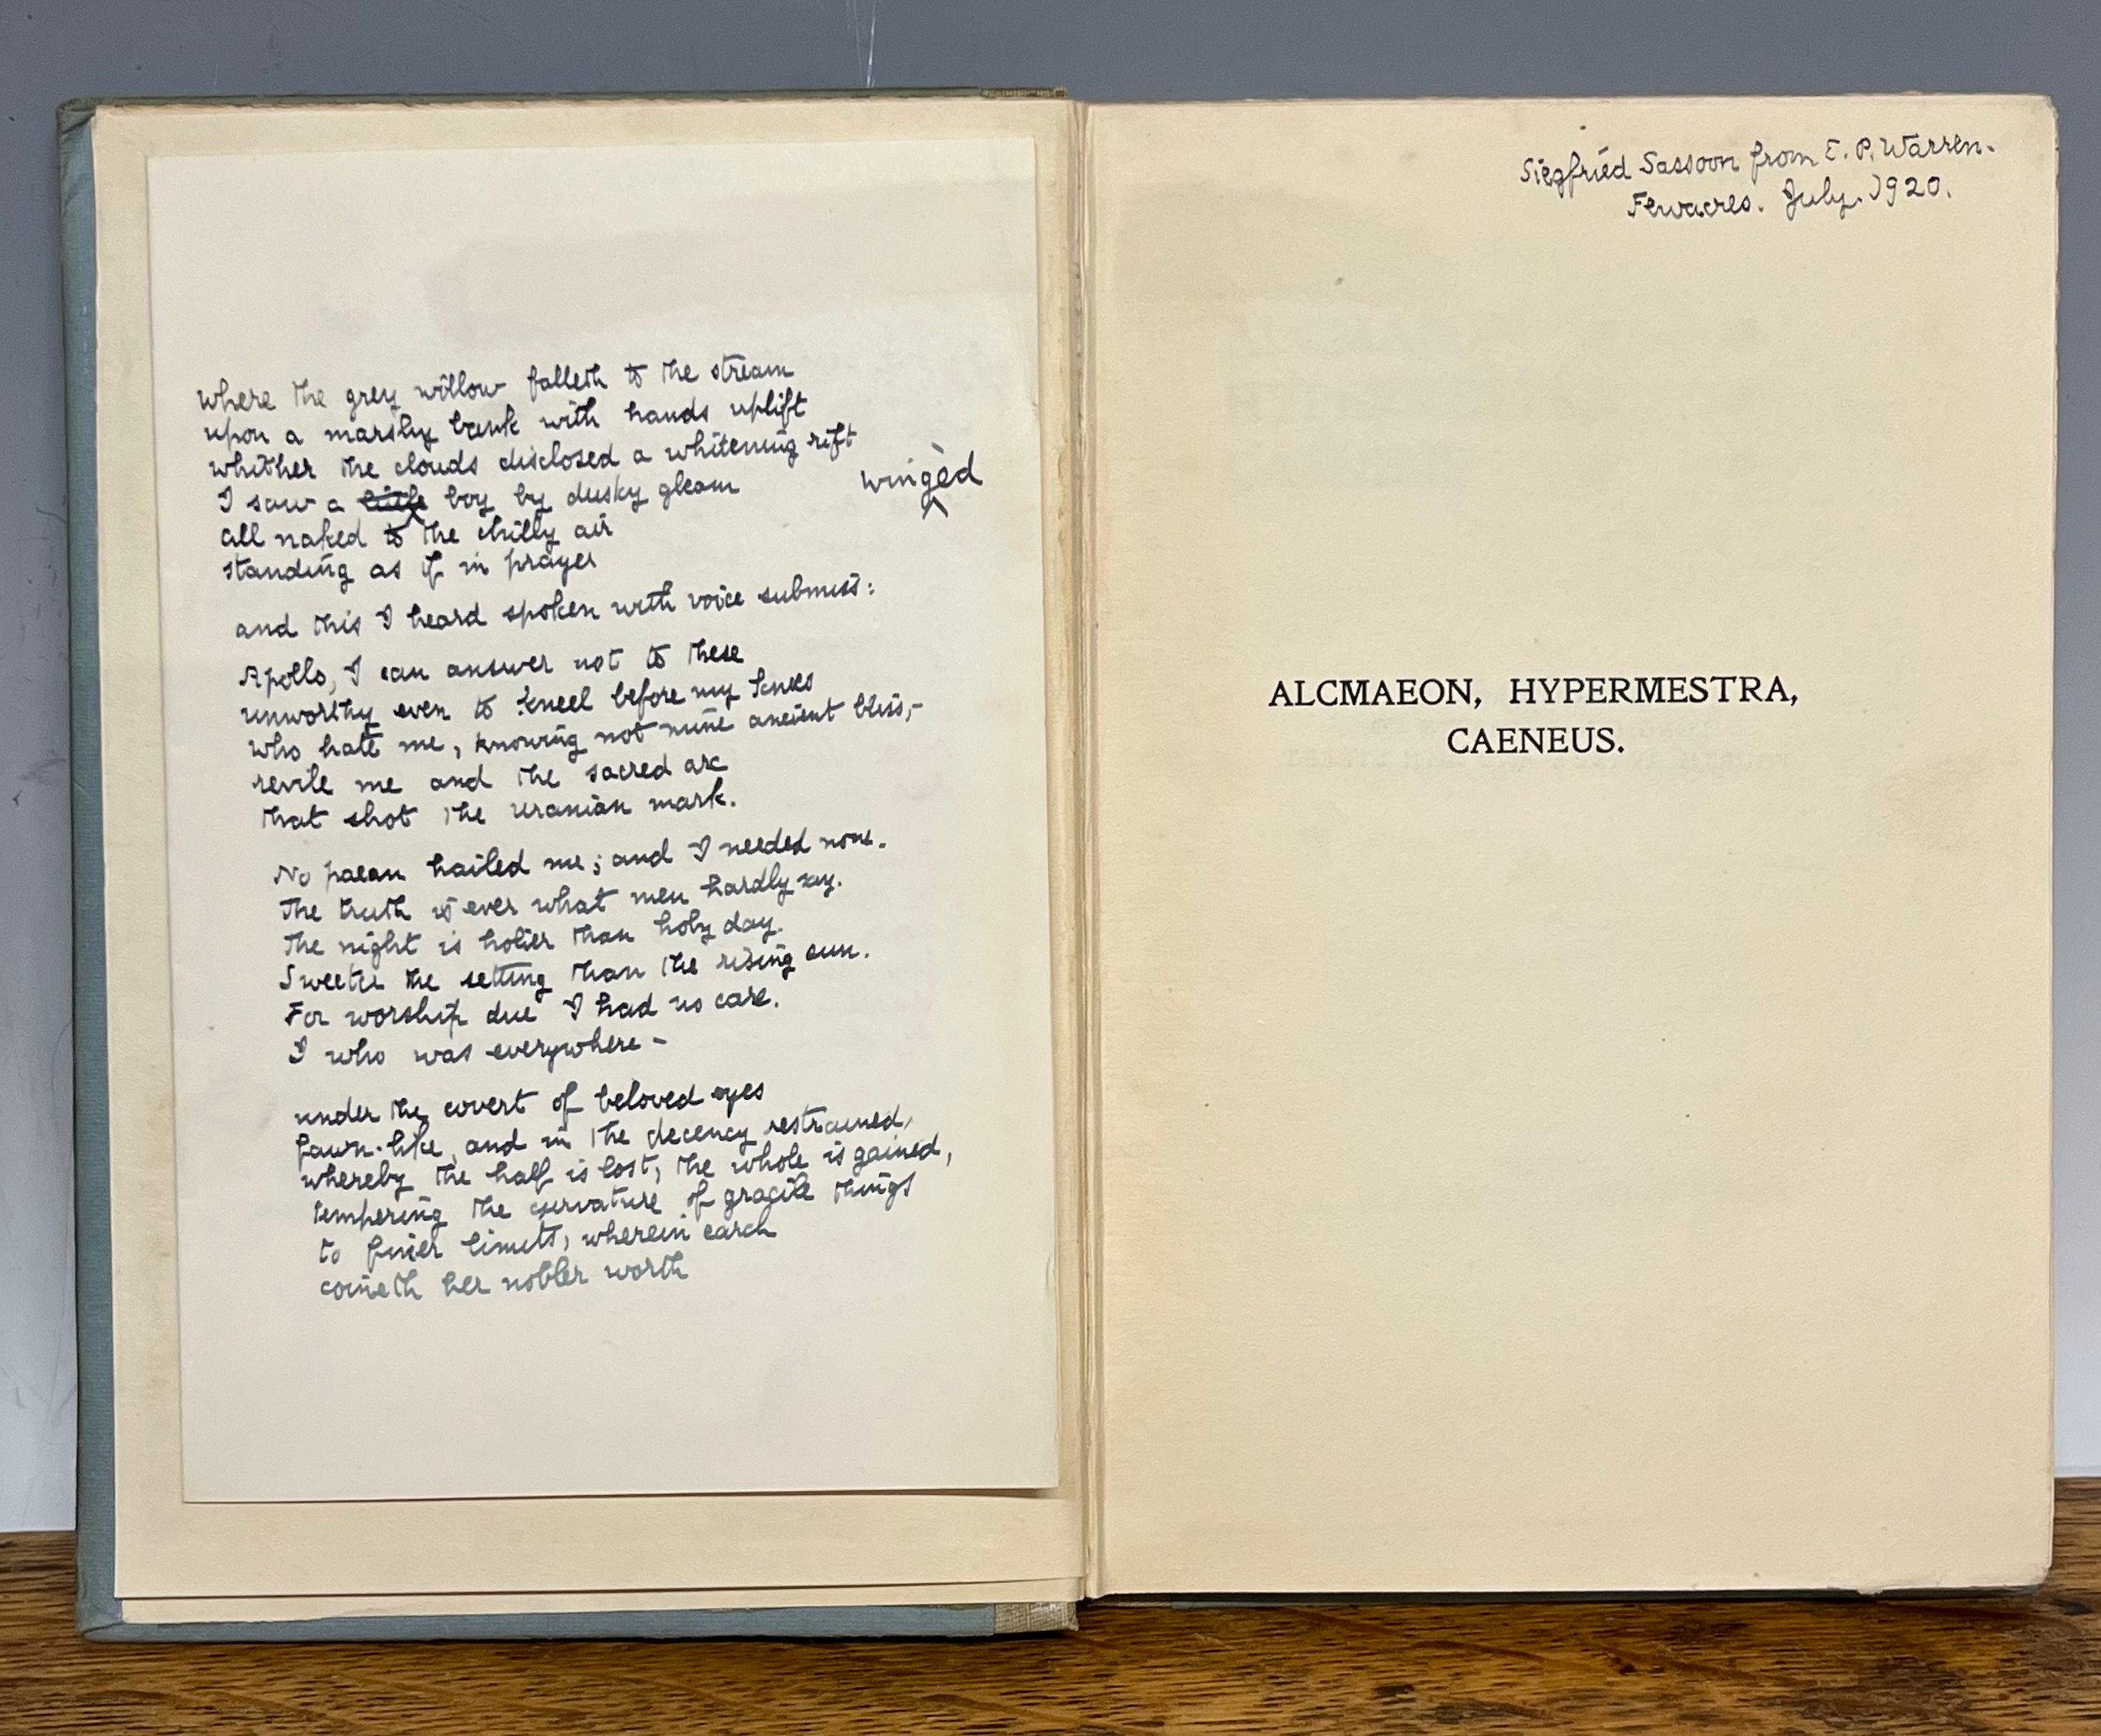 where the grey willow falleth to the stream
upon a marshy bank with hands uplift
whither the clouds disclosed a whitening rift
I saw a little boy by dusky gleam
wingèd
all naked to the chilly air
standing as if in prayer
and this I heard spoken with voice submiss:
Apollo, I can answer not to these
unworthy even to kneel before my knees
who hate me, knowing not mine ancient bliss,-
revile me and the sacred arc
that shot the uranian mark.
No paean hailed me; and I needed none.
The truth is ever what men hardly say.
The night is holier than holy day.
Sweeter the setting than the rising sun.
For worship due I had no care.
I who was everywhere -
under the covert of beloved eyes
fawn-like, and in the decency restrained,
whereby the half is lost, the whole is gained,
tempering the curvature of gracile things
to finer limits, wherein earth
cometh her nobler worth
Siegfried Sassoon from E. P. Warren.
Fewacres. July. 1920.
ALCMAEON, HYPERMESTRA,
CAENEUS.